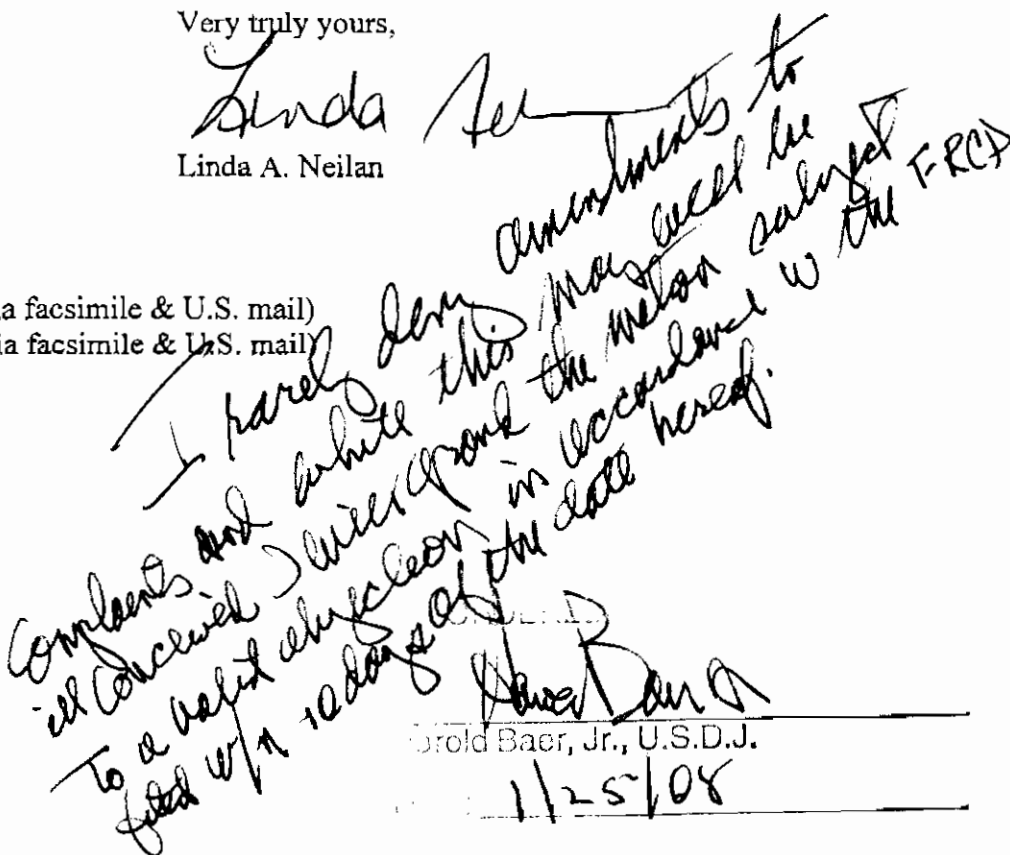 Very truly yours,
Linda
Linda A. Neilan
a facsimile & U.S. mail)
ia facsimile & U.S. mail)
I rarely deny amendments to
Complaints and while this may well be
ill conceived I will grant the motion subject
To a valid objection in accordance w the FRCP
filed w/n 10 days of the date hereof.
Harold Baer Jr
arold Baer, Jr., U.S.D.J.
1/25/08